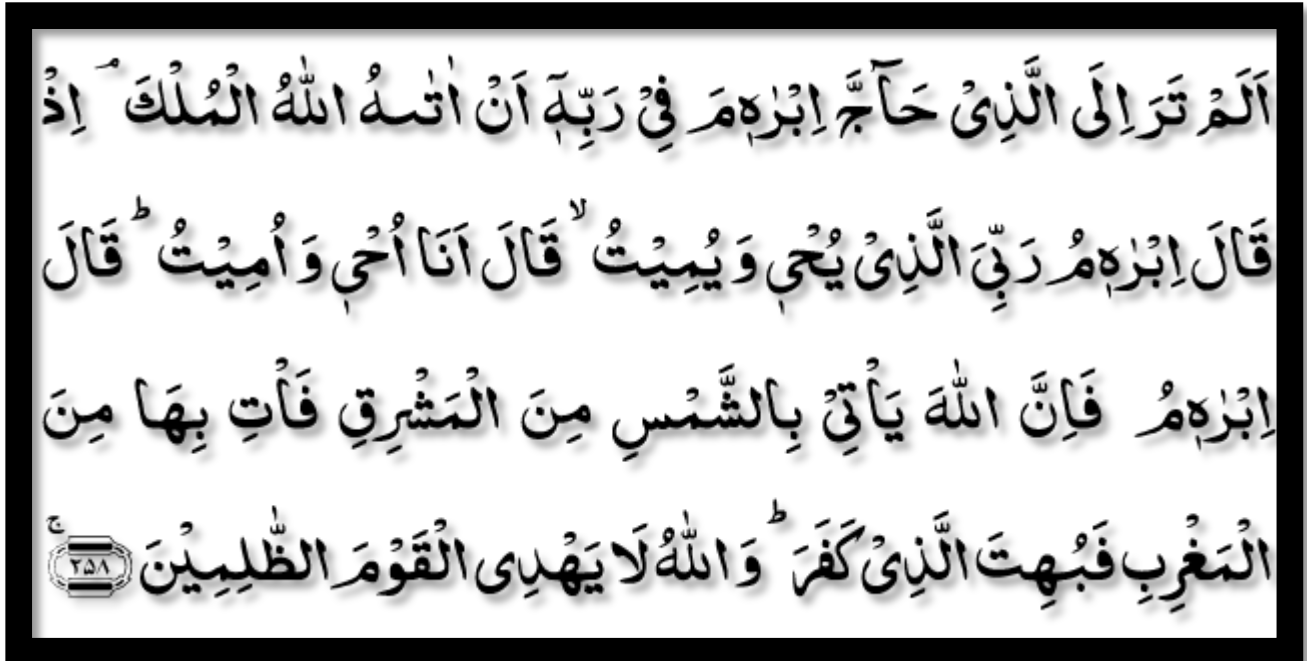 اَلَمْ تَرَ اِلَى الَّذِیْ حَآجَّ اِبْرٰهٖمَ فِیْ رَبِّهٖۤ اَنْ اٰتٰىهُ اللّٰهُ الْمُلْكَ ۘ اِذْ
قَالَ اِبْرٰهٖمُ رَبِّیَ الَّذِیْ یُحْیٖ وَ یُمِیْتُ ۙ قَالَ اَنَا اُحْیٖ وَ اُمِیْتُ ؕ قَالَ
اِبْرٰهٖمُ فَاِنَّ اللّٰهَ یَاْتِیْ بِالشَّمْسِ مِنَ الْمَشْرِقِ فَاْتِ بِهَا مِنَ
الْمَغْرِبِ فَبُهِتَ الَّذِیْ كَفَرَ ؕ وَ اللّٰهُ لَا یَهْدِی الْقَوْمَ الظّٰلِمِیْنَ ۚ ﴿۲۵۸﴾